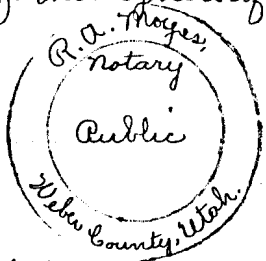 R. A. Moyes,
Notary
Public
Weber County, Utah.